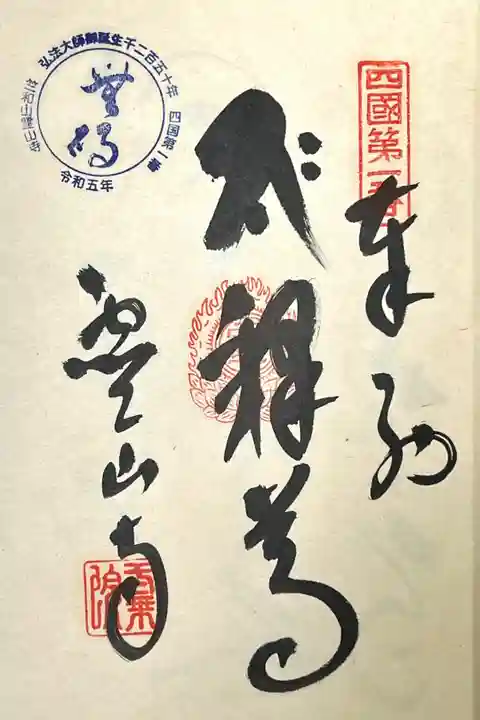 四國第一番
奉納
釋迦尊
霊山寺
弘法大師御誕生千二百五十年
四国第一番
竺和山霊山寺
令和五年
一乗院